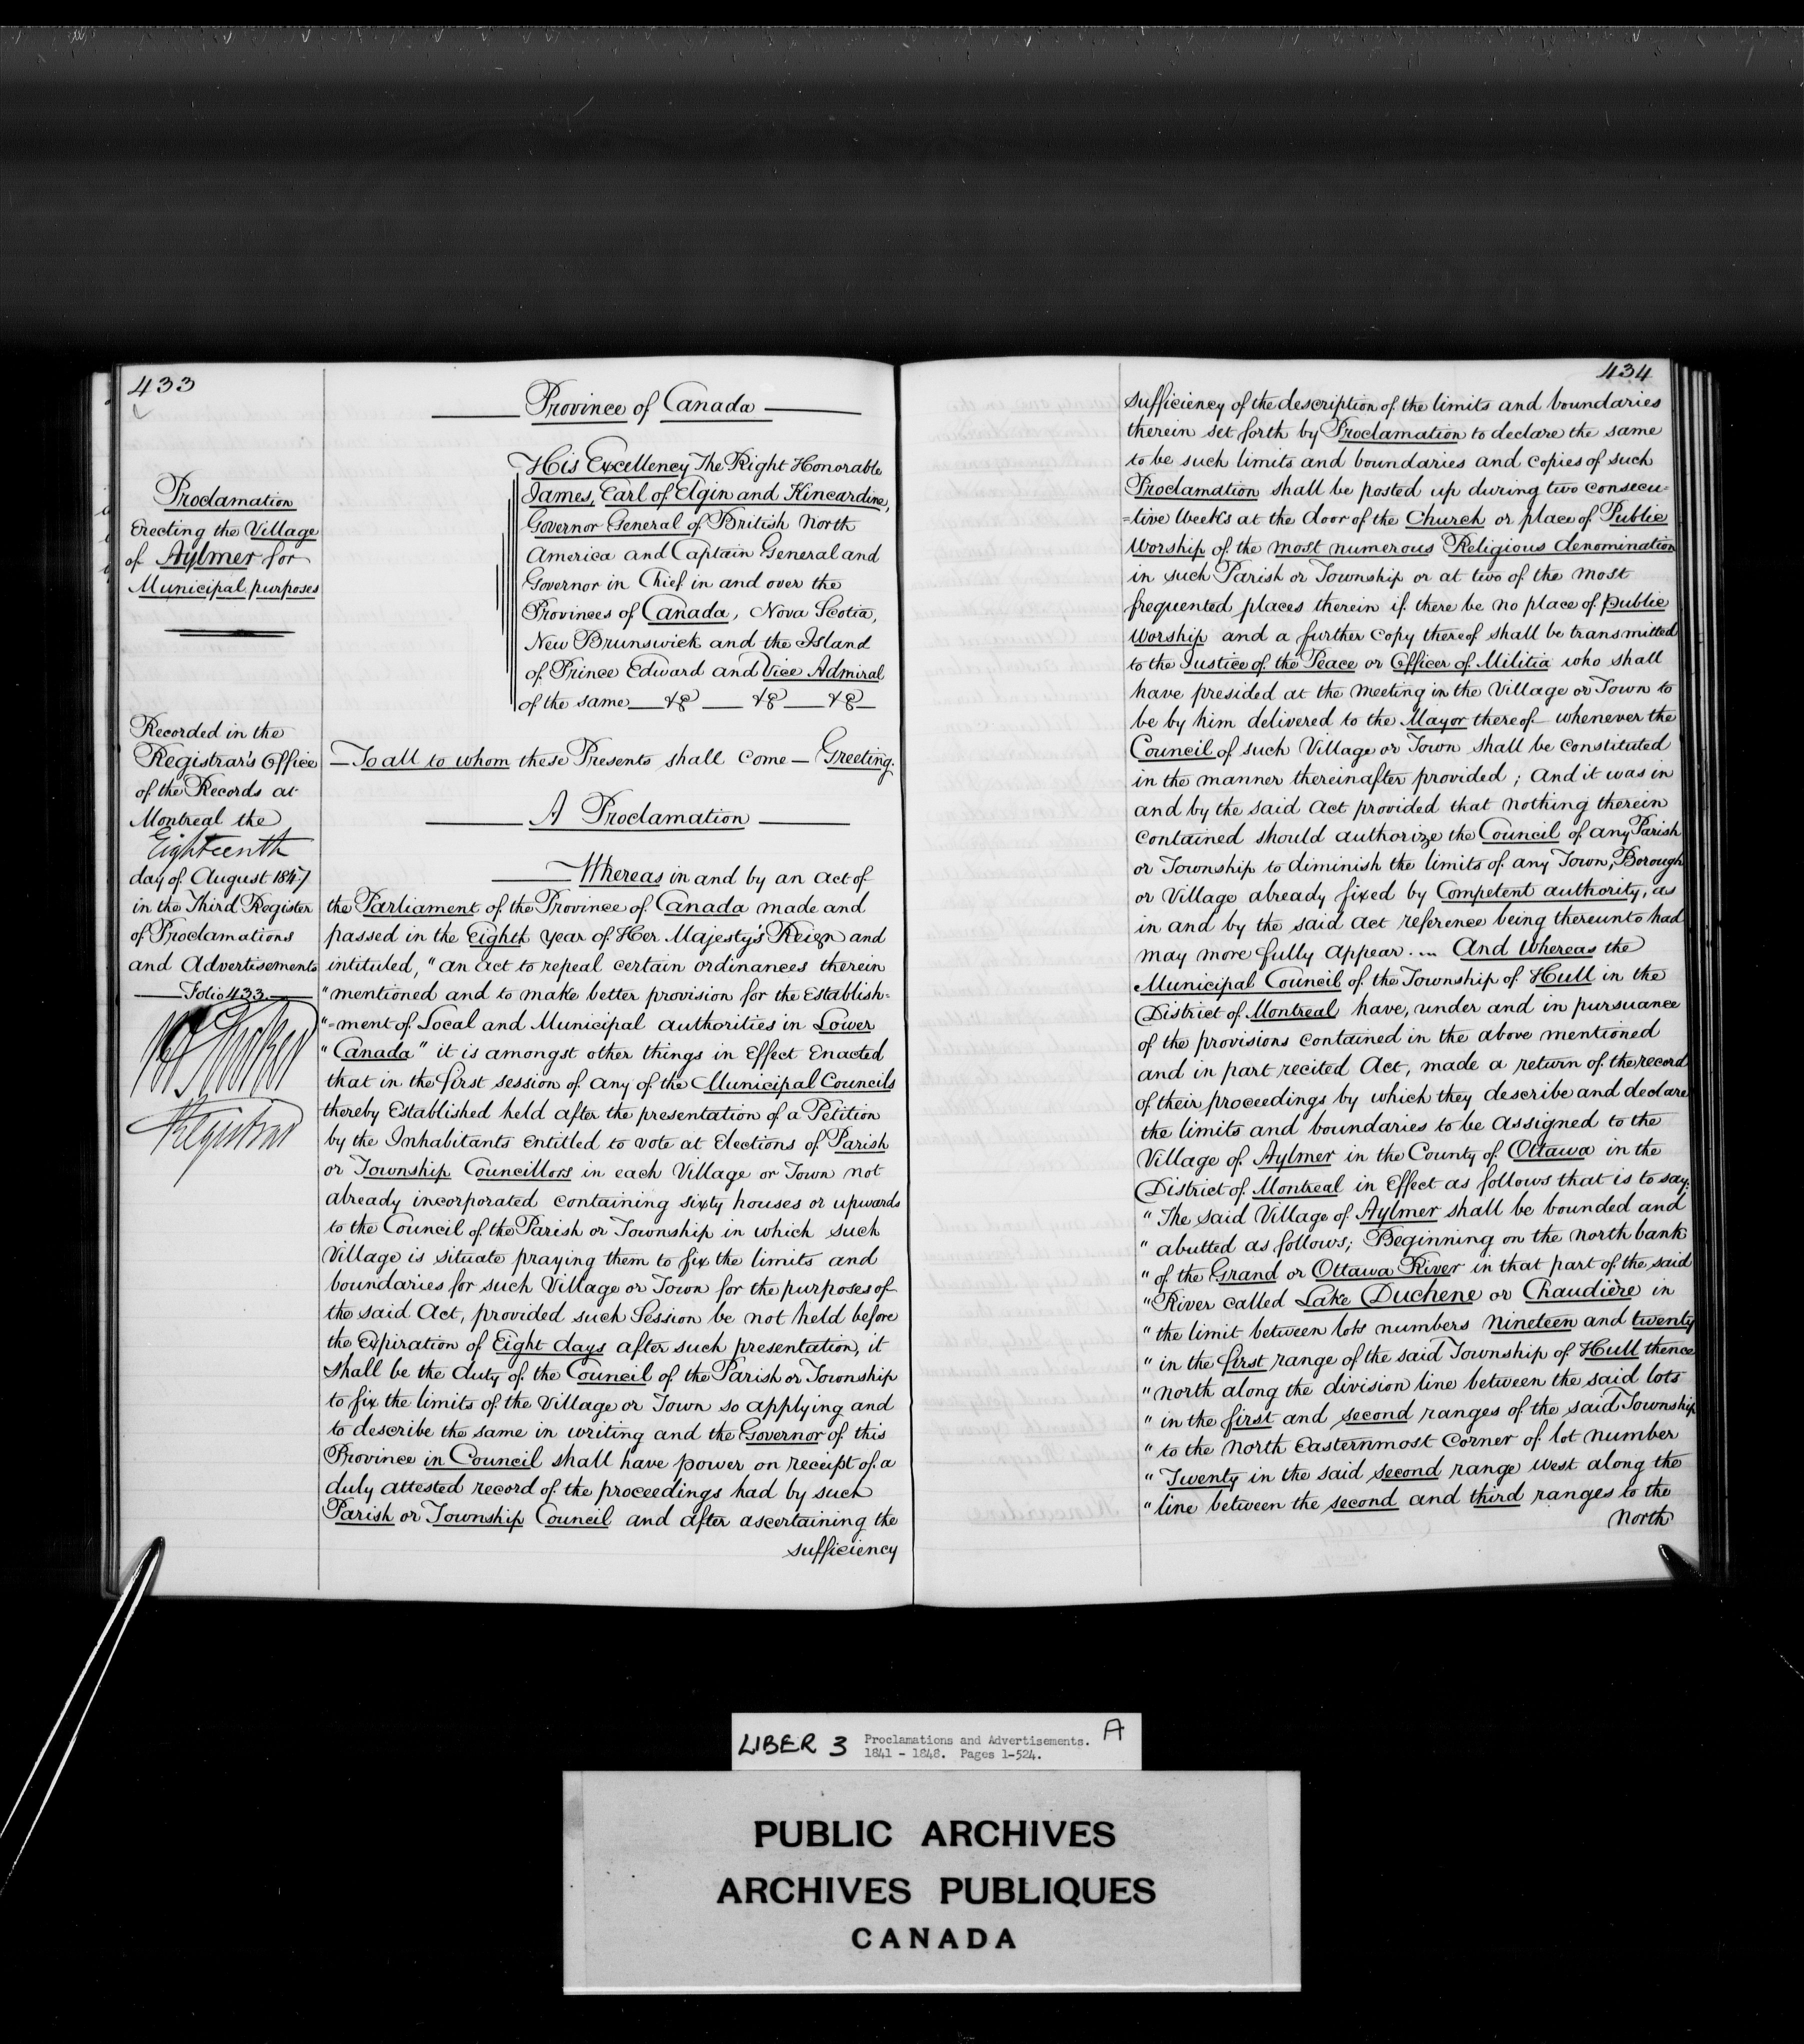 433
Proclamation
Erecting the Village
of Aylmer for
Municipal purposes
Recorded in the
Registrar's Office
of the Records at
Montreal the
Eighteenth
day of August 1847
in the Third Register
of Proclamations
and Advertisements
Folio 433.
Registrar
Province of Canada
His Excellency The Right Honorable
James, Earl of Elgin and Kincardine,
Governor General of British North
America and Captain General and
Governor in Chief in and over the
Provinces of Canada, Nova Scotia,
New Brunswick and the Island
of Prince Edward and Vice Admiral
of the same &c &c &c
To all to whom these Presents shall come — Greeting.
A Proclamation
Whereas in and by an act of
the Parliament of the Province of Canada made and
passed in the Eighth year of Her Majesty's Reign and
intituled, "an act to repeal certain ordinances therein
"mentioned and to make better provision for the Establish=
"=ment of Local and Municipal authorities in Lower
"Canada" it is amongst other things in Effect Enacted
that in the first session of any of the Municipal Councils
thereby Established held after the presentation of a Petition
by the Inhabitants entitled to vote at Elections of Parish
or Township Councillors in each Village or Town not
already incorporated containing sixty houses or upwards
to the Council of the Parish or Township in which such
Village is situate praying them to fix the limits and
boundaries for such Village or Town for the purposes of
the said Act, provided such Session be not held before
the Expiration of Eight days after such presentation, it
shall be the duty of the Council of the Parish or Township
to fix the limits of the Village or Town so applying and
to describe the same in writing and the Governor of this
Province in Council shall have power on receipt of a
duly attested record of the proceedings had by such
Parish or Township Council and after ascertaining the
sufficiency
434
sufficiency of the description of the limits and boundaries
therein set forth by Proclamation to declare the same
to be such limits and boundaries and copies of such
Proclamation shall be posted up during two consecu=
=tive Weeks at the door of the Church or place of Public
Worship of the most numerous Religious denomination
in such Parish or Township or at two of the most
frequented places therein if there be no place of public
Worship and a further copy thereof shall be transmitted
to the Justice of the Peace or Officer of Militia who shall
have presided at the meeting in the Village or Town to
be by him delivered to the Mayor thereof whenever the
Council of such Village or Town shall be constituted
in the manner thereinafter provided; And it was in
and by the said Act provided that nothing therein
contained should authorize the Council of any Parish
or Township to diminish the limits of any Town, Borough
or Village already fixed by Competent authority, as
in and by the said Act reference being thereunto had
may more fully appear. ... And Whereas the
Municipal Council of the Township of Hull in the
District of Montreal have, under and in pursuance
of the provisions contained in the above mentioned
and in part recited Act, made a return of the record
of their proceedings by which they describe and declare
the limits and boundaries to be assigned to the
Village of Aylmer in the County of Ottawa in the
District of Montreal in Effect as follows that is to say:
"The said Village of Aylmer shall be bounded and
"abutted as follows; Beginning on the north bank
"of the Grand or Ottawa River in that part of the said
"River called Lake Duchene or Chaudière in
"the limit between lots numbers nineteen and twenty
"in the first range of the said Township of Hull thence
"north along the division line between the said lots
"in the first and second ranges of the said Township
"to the North Easternmost Corner of lot number
"Twenty in the said second range West along the
"line between the second and third ranges to the
North
LIBER 3 Proclamations and Advertisements. A
1841 - 1848. Pages 1-524.
PUBLIC ARCHIVES
ARCHIVES PUBLIQUES
CANADA